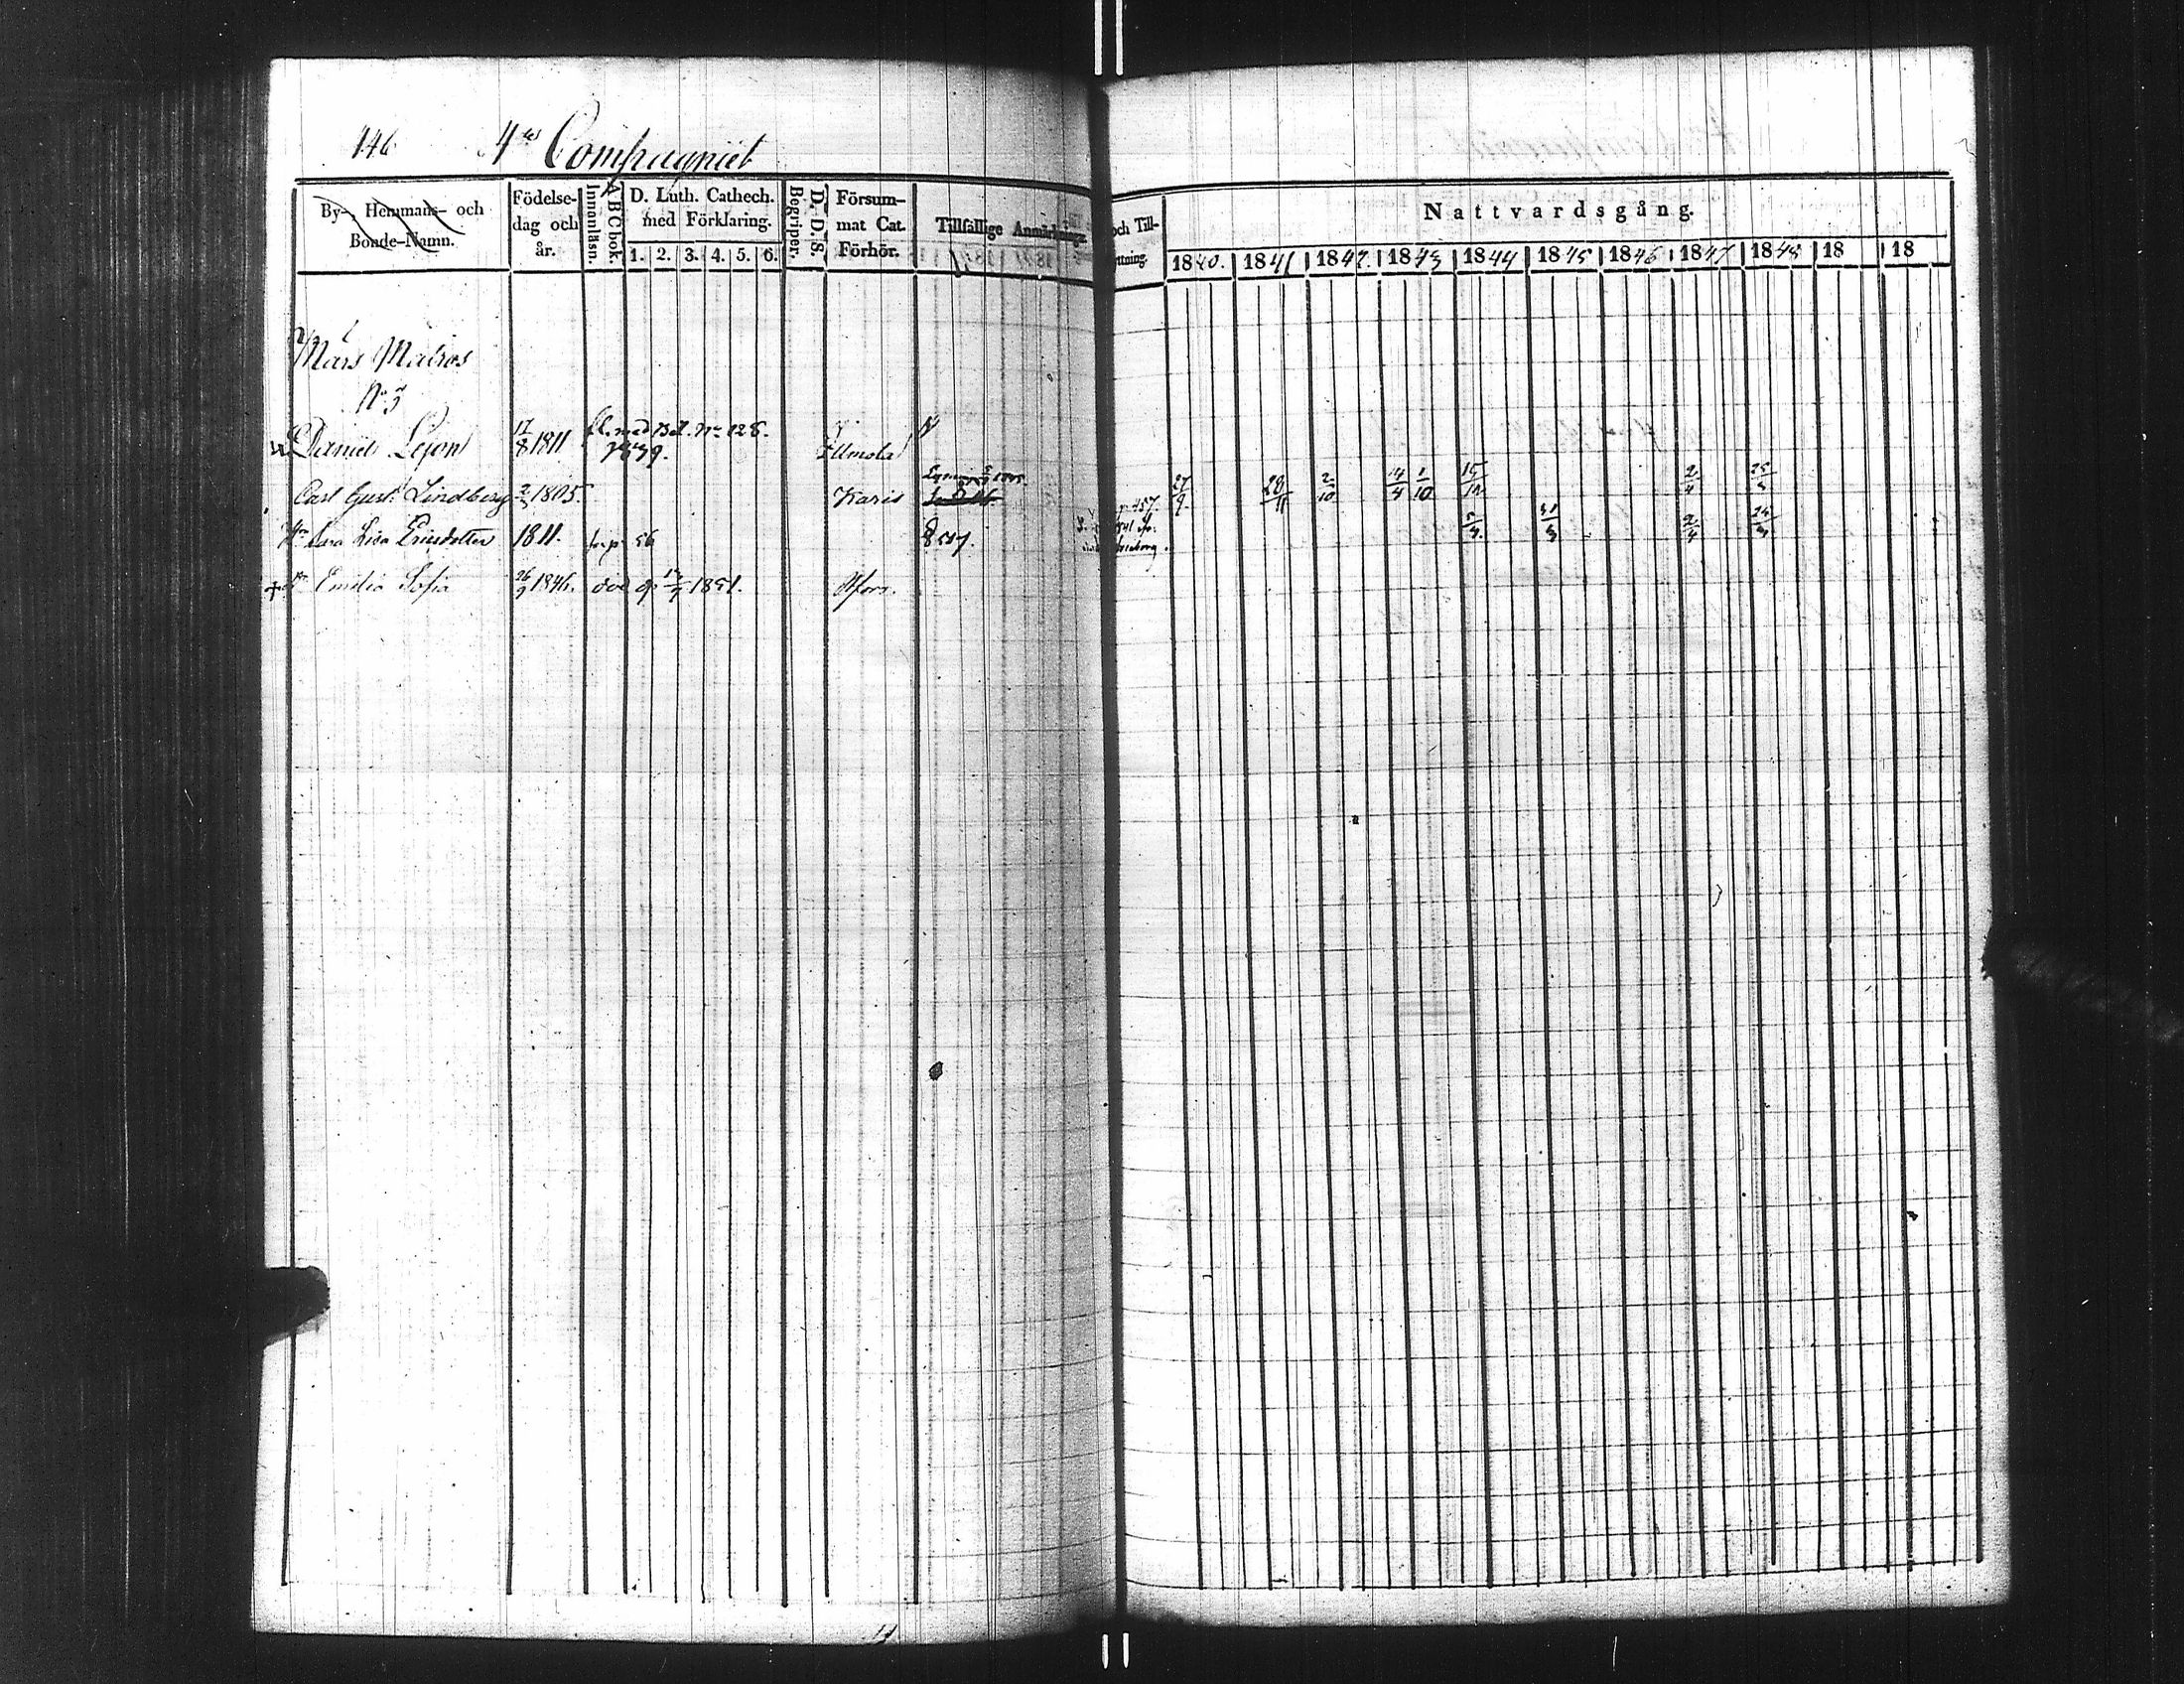 146 4de Compagniet
By-, Hemmans- och Bonde-Namn.
Födelse-dag och år.
Innanläsn.
ABC bok.
D. Luth. Cathech. med Förklaring.
1. 2. 3. 4. 5. 6.
Begriper.
D. D. S.
Försum-mat Cat. Förhör.
Tillfällige Anmärkningar
och Till-
Nattvardsgång.
1840. 1841 1842. 1843 1844 1845 1846 1847 1848 18 18
Mars Matros
No 3
Daniel Lejon 17/8 1811 fl. med Bet. No 128. Ilmola
1839.
Carl Gust. Lindberg 2/3 1805. Karis 27/9. 28/11 2/10 14/4 1/10 2/4
Lisa Ericsdotter 1811. 56 31/3 2/4
Emilia Sofia 26/9 1846. död 1851. Hfors.